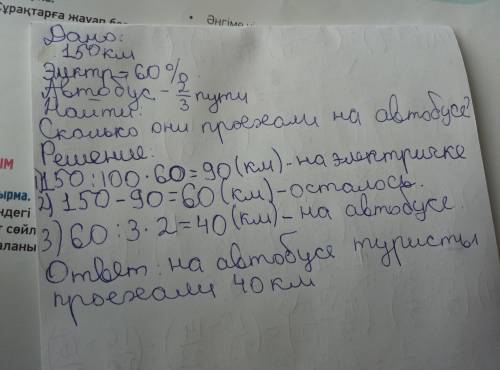 Сұрақтарға жауап бер
• Әңгіме
Дано:
150км
Электр=60%
Автобус - 2/3 пути
Найти:
Сколько они проехали на автобусе?
Решение:
1) 150:100·60=90(км)-на электричке
2) 150-90=60(км)-осталось.
3) 60:3·2=40(км)-на автобусе.
Ответ: на автобусе туристы
проехали 40км
ЫМ